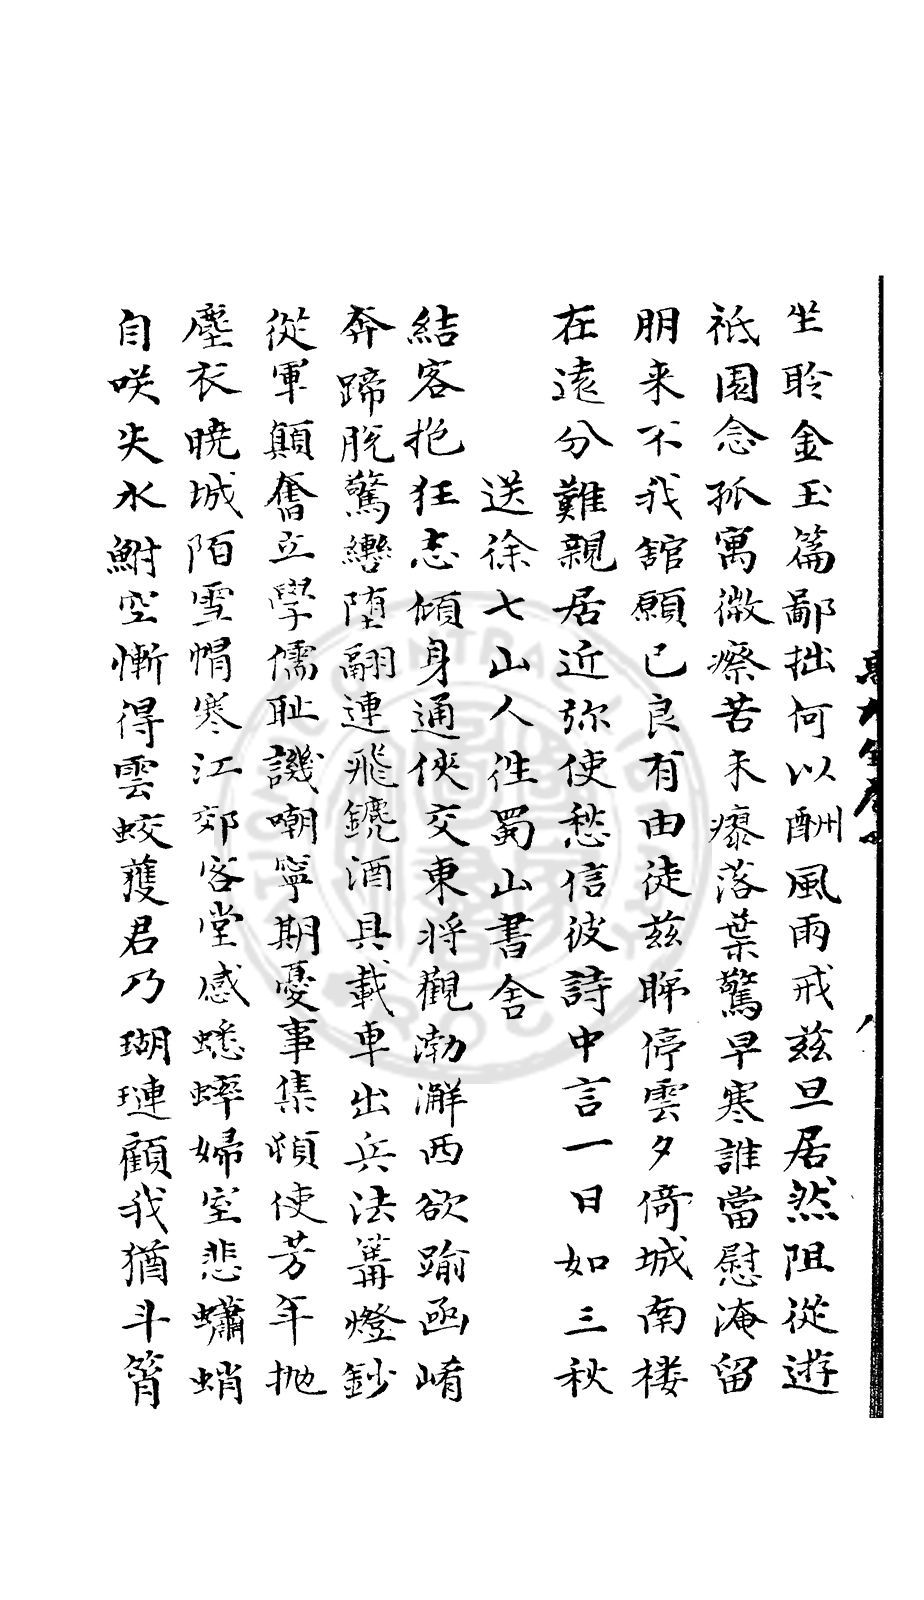 坐聆金玉篇鄙拙何以酬風雨戒兹旦居然阻從遊
祇園念孤寓微瘵苦未瘳落葉驚早寒誰當慰淹留
朋来不我舘願已良有由徒兹睇停雲夕倚城南楼
在遠分難親居近弥使愁信彼詩中言一日如三秋
送徐七山人徃蜀山書舎
結客抱狂志傾身通俠交東将觀渤澥西欲踰函崤
奔蹄脫驚轡堕翮連飛髇酒具載車出兵法篝燈鈔
從軍顛奮立學儒耻譏嘲寧期憂事集頓使芳年抛
塵衣曉城陌雪㡌寒江郊客堂感蟋蟀婦室悲蠨蛸
自咲失水鮒空慚得雲蛟蒦君乃瑚璉顧我猶斗筲
髙太全卷四
八